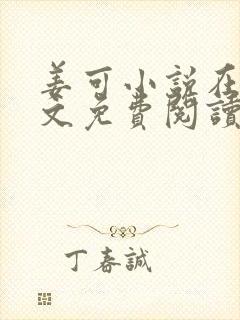 姜可小说在
文免費閱讀
丁春誠